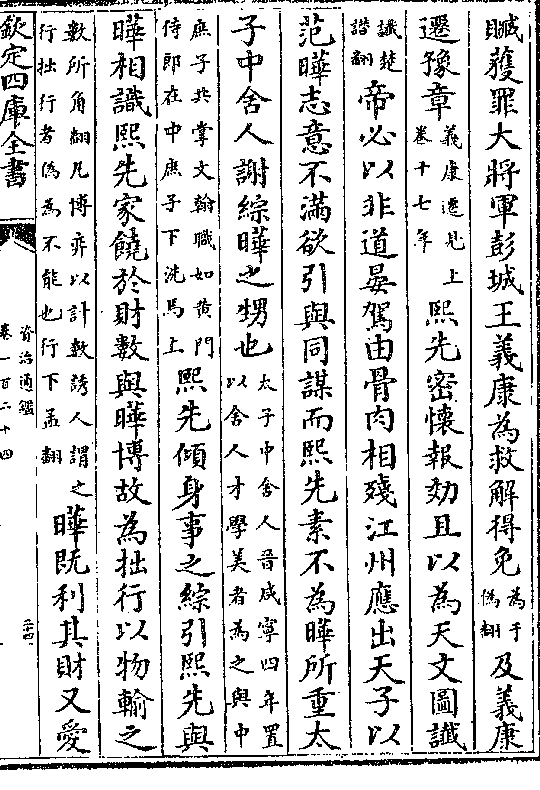 贓獲罪大將軍彭城王義康為救解得免為于偽翻及義康
遷豫章義康遷見上卷十七年熙先密懷報効且以為天文圖讖
讖楚譖翻帝必以非道晏駕由骨肉相殘江州應出天子以
范曄志意不滿欲引與同謀而熙先素不為曄所重太
子中舍人謝綜曄之甥也太子中舍人晉咸寧四年置以舍人才學美者為之與中
庶子共掌文翰職如黄門侍郎在中庶子下洗馬上熙先傾身事之綜引熙先與
曄相識熙先家饒於財數與曄博故為拙行以物輸之
數所角翻凡博弈以計數誘人謂之行拙行者偽為不能也行下孟翻曄既利其財又愛
欽定四庫全書
資治通鑑
卷一百二十四
二十四